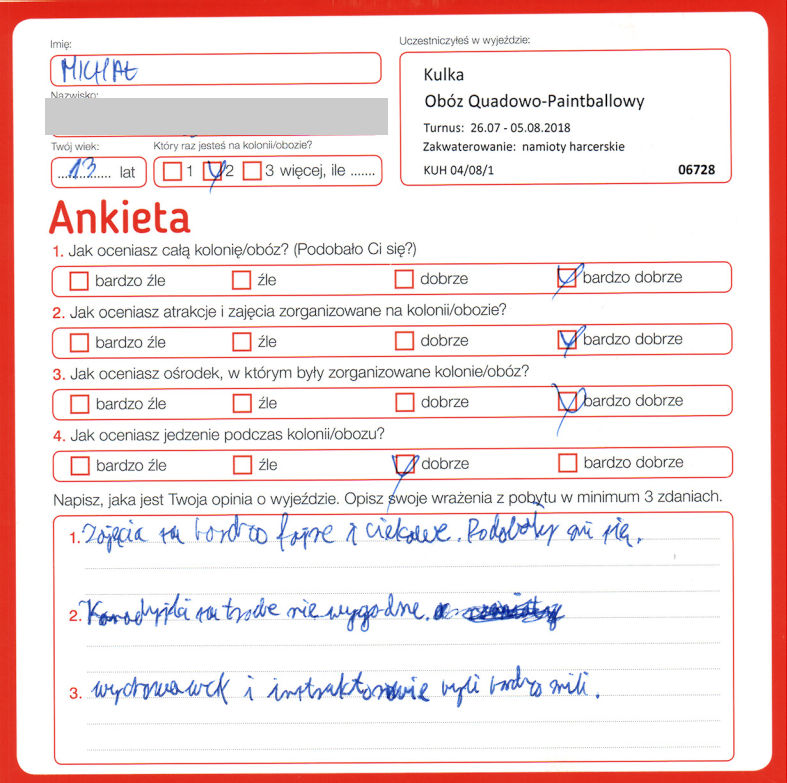 Imię:
MICHAŁ
Uczestniczyłeś w wyjeździe:
Kulka
Obóz Quadowo-Paintballowy
Turnus: 26.07 - 05.08.2018
Zakwaterowanie: namioty harcerskie
KUH 04/08/1 06728
Nazwisko:
Twój wiek: Który raz jesteś na kolonii/obozie?
13 lat 1 2 3 więcej, ile .......
Ankieta
1. Jak oceniasz całą kolonię/obóz? (Podobało Ci się?)
bardzo źle źle dobrze bardzo dobrze
2. Jak oceniasz atrakcje i zajęcia zorganizowane na kolonii/obozie?
bardzo źle źle dobrze bardzo dobrze
3. Jak oceniasz ośrodek, w którym były zorganizowane kolonie/obóz?
bardzo źle źle dobrze bardzo dobrze
4. Jak oceniasz jedzenie podczas kolonii/obozu?
bardzo źle źle dobrze bardzo dobrze
Napisz, jaka jest Twoja opinia o wyjeździe. Opisz swoje wrażenia z pobytu w minimum 3 zdaniach.
1. Zajęcia są bardzo fajne i ciekawe. Podobały mi się.
2. są trochę niewygodne.
3. i instruktorowie byli bardzo mili.